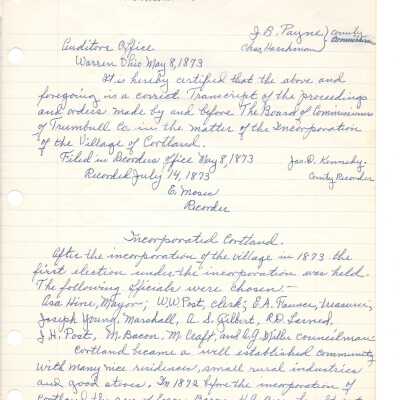 J. B. Payne } County
Auditors Office Chas Harshman } Commissioners
Warren Ohio May 8, 1873
It is hereby certified that the above and
foregoing is a correct Transcript of the proceedings
and orders made by and before The Board of Commissioners
of Trumbull Co in the matter of the Incorporation
of the Village of Cortland.
Filed in Recorders Office May 8, 1873 Jas. D. Kennedy.
Recorded July 14, 1873 County Recorder
E. Moser
Recorder
Incorporated Cortland.
After the incorporation of the village in 1873 the
first election under the incorporation was held.
The following officials were chosen:-
Asa Hine, Mayor; W.W. Post, Clerk; E.A. Treasurer,
Joseph Young, Marshall, A. S. Gilbert, R.D. Larned,
J. H. Post, M. Bacon, M. Craft, and C.J. Miller Councilman
Cortland became a well established community
with many nice residences, small rural industries
and good stores. In 1872 before the incorporation of